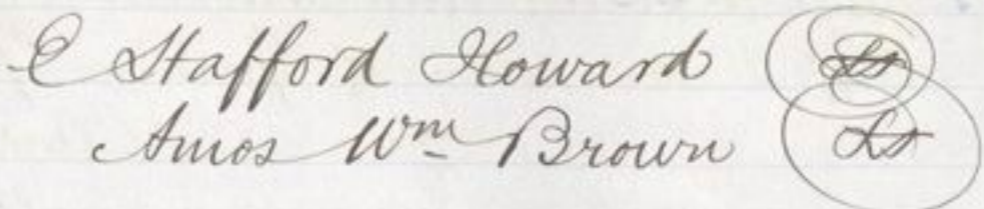 E Stafford Howard LS
Amos Wm Brown LS